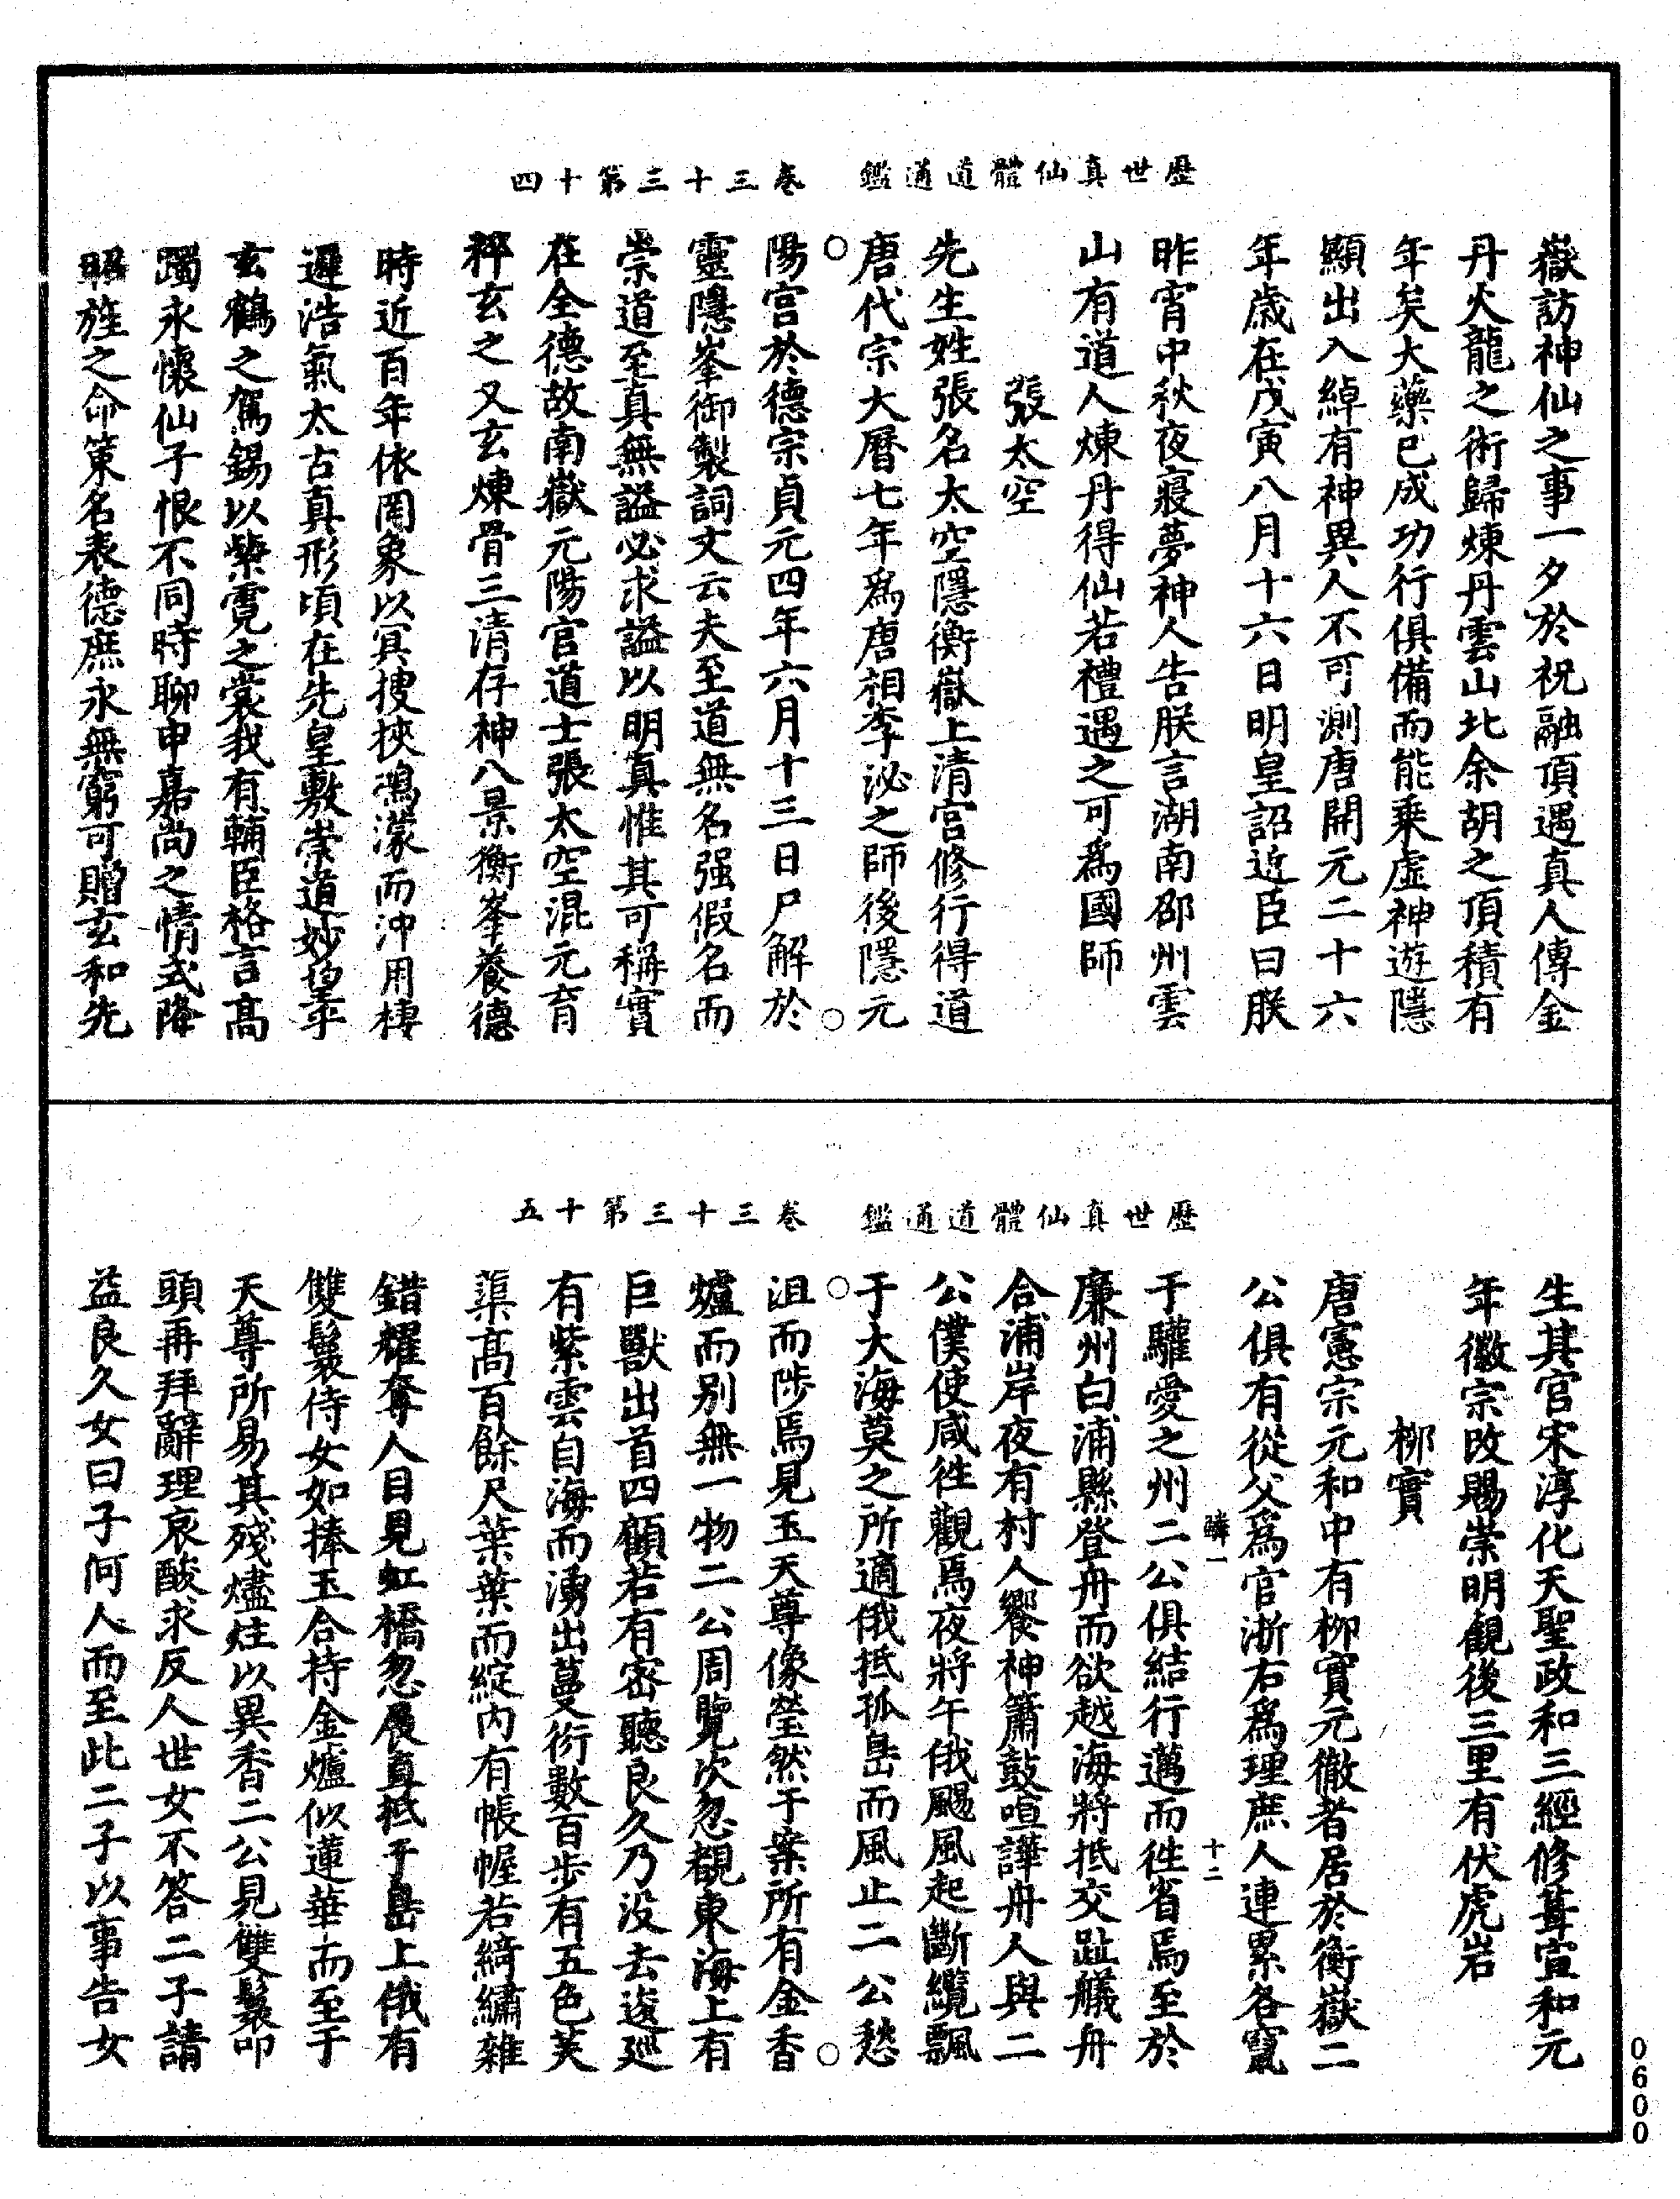 歷世真仙體道通鑑　卷三十三第十四
嶽訪神仙之事一夕於祝融頂遇真人傳金
丹火龍之術歸煉丹雲山北余胡之頂積有
年矣大藥已成功行俱備而能乗虛神遊隱
顯出入綽有神異人不可測唐開元二十六
年歲在戊寅八月十六日明皇詔近臣曰朕
昨宵中秋夜寢夢神人告朕言湖南邵州雲
山有道人煉丹得仙若禮遇之可爲國師
張太空
先生姓張名太空隱衡嶽上清宮修行得道
唐代宗大曆七年爲唐相李泌之師後隱元
陽宮於德宗貞元四年六月十三日尸解於
靈隱峯御製詞文云夫至道無名强假名而
崇道至真無謚必求謚以明真惟其可稱實
在全德故南嶽元陽官道士張太空混元育
粹玄之又玄煉骨三清存神八景衡峯養德
時近百年依罔象以冥搜挾鴻濛而沖用棲
遲浩氣太古真形頃在先皇敷崇道妙望
玄鶴之駕錫以紫霓之裳我有輔臣格言高
躅永懷仙子恨不同時聊申嘉尚之情式降
昭旌之命策名表德庶永無窮可贈玄和先
歷世真仙體道通鑑　卷三十三第十五
生其官宋淳化天聖政和三經修葺宣和元
年徽宗改賜崇明觀後三里有伏虎岩
柳實
唐憲宗元和中有柳實元徹者居於衡嶽二
公俱有從父爲官浙右爲理庶人連累各竄
鱗一　十二
于驩愛之州二公俱結行邁而徃省焉至於
廉州白浦縣登舟而欲越海將抵交趾艤舟
合浦岸夜有村人饗神簫鼓喧譁舟人與二
公僕使咸徃觀焉夜將午俄颶風起斷纜飄
于大海莫之所適俄抵孤島而風止二公愁
沮而陟焉見玉天尊像瑩然于案所有金香
爐而别無一物二公周覽次忽覩東海上有
巨獸出首四顧若有密聽良久乃没去逡廵
有紫雲自海而湧出蔓衍數百步有五色芙
蕖高百餘尺葉葉而綻内有帳幄若綺繡雜
錯耀奪人目見虹橋忽展直抵于島上俄有
雙鬟侍女如捧玉合持金爐似蓮華而至于
天尊所易其殘燼炷以異香二公見雙鬟叩
頭再拜辭理哀酸求反人世女不答二子請
益良久女曰子何人而至此二子以事告女
0600